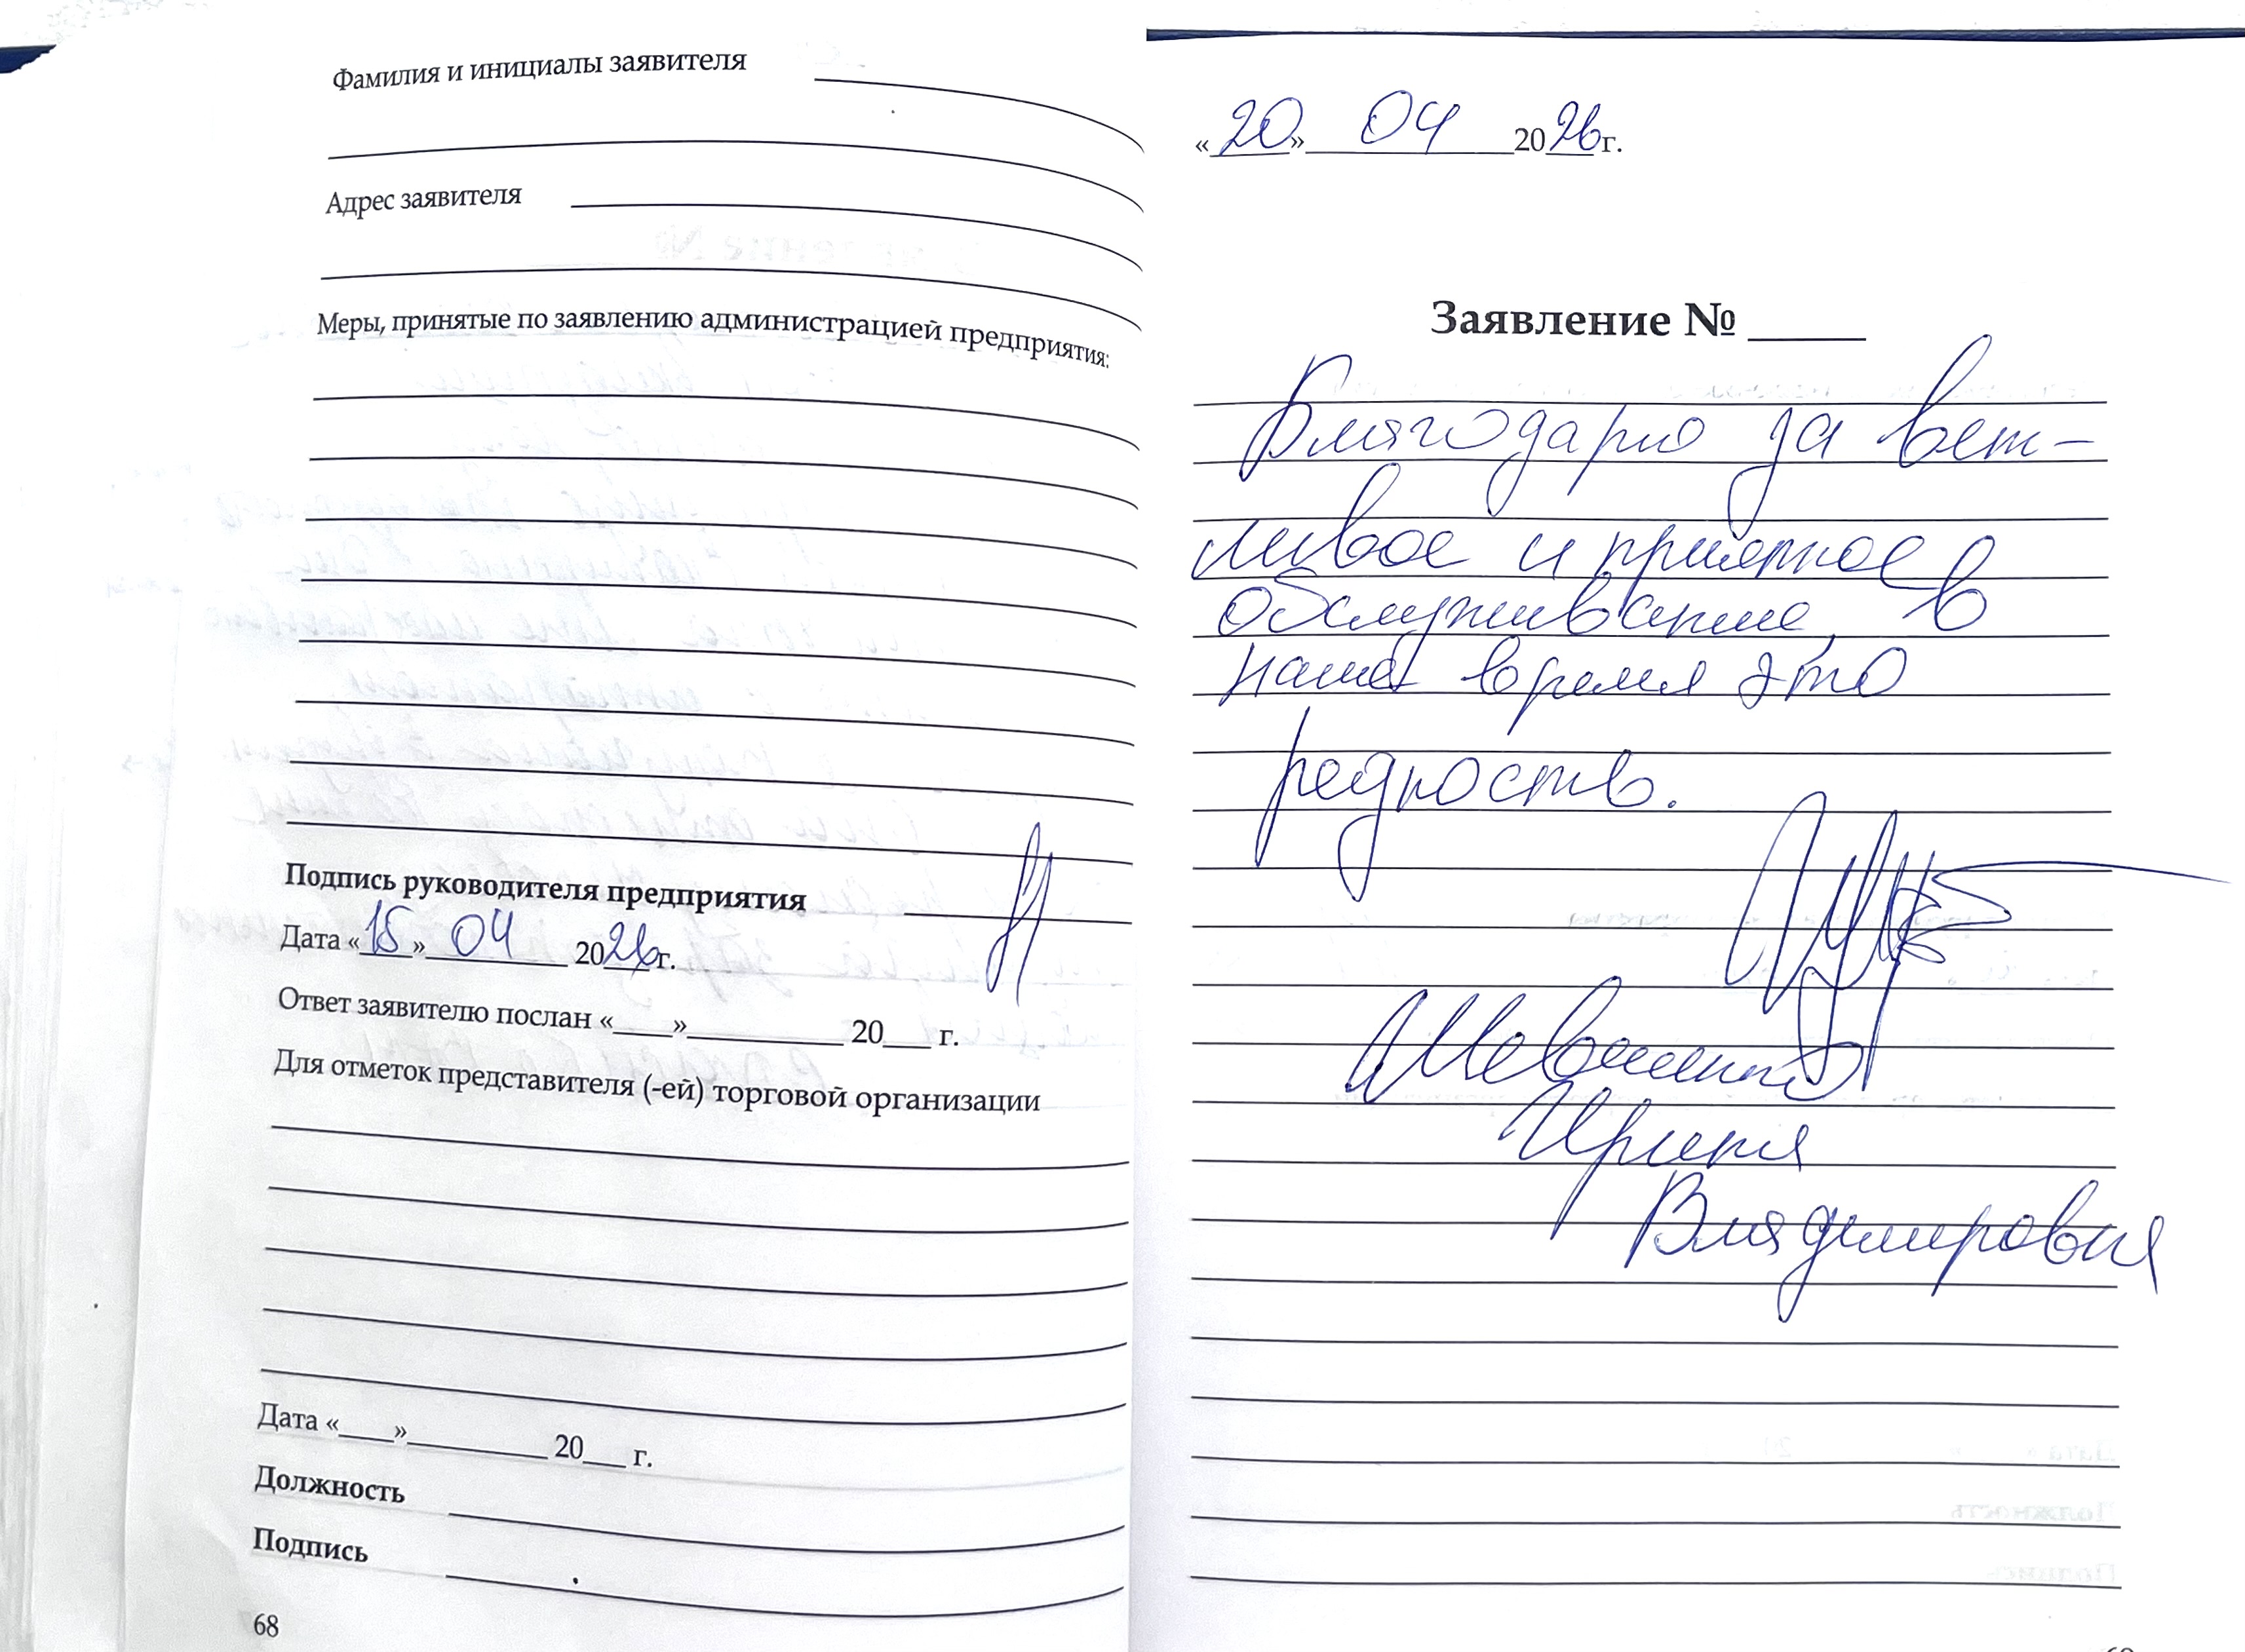 Фамилия и инициалы заявителя
Адрес заявителя
Меры, принятые по заявлению администрацией предприятия:
Подпись руководителя предприятия
Дата «15» 04 2026 г.
Ответ заявителю послан «____»__________ 20___ г.
Для отметок представителя (-ей) торговой организации
Дата «____»__________ 20___ г.
Должность
Подпись
68
«20» 04 2026 г.
Заявление № _____
Благодарю за веж-
ливое и приятное
обслуживание, в
наше время это
редкость.
Ирина
Владимировна